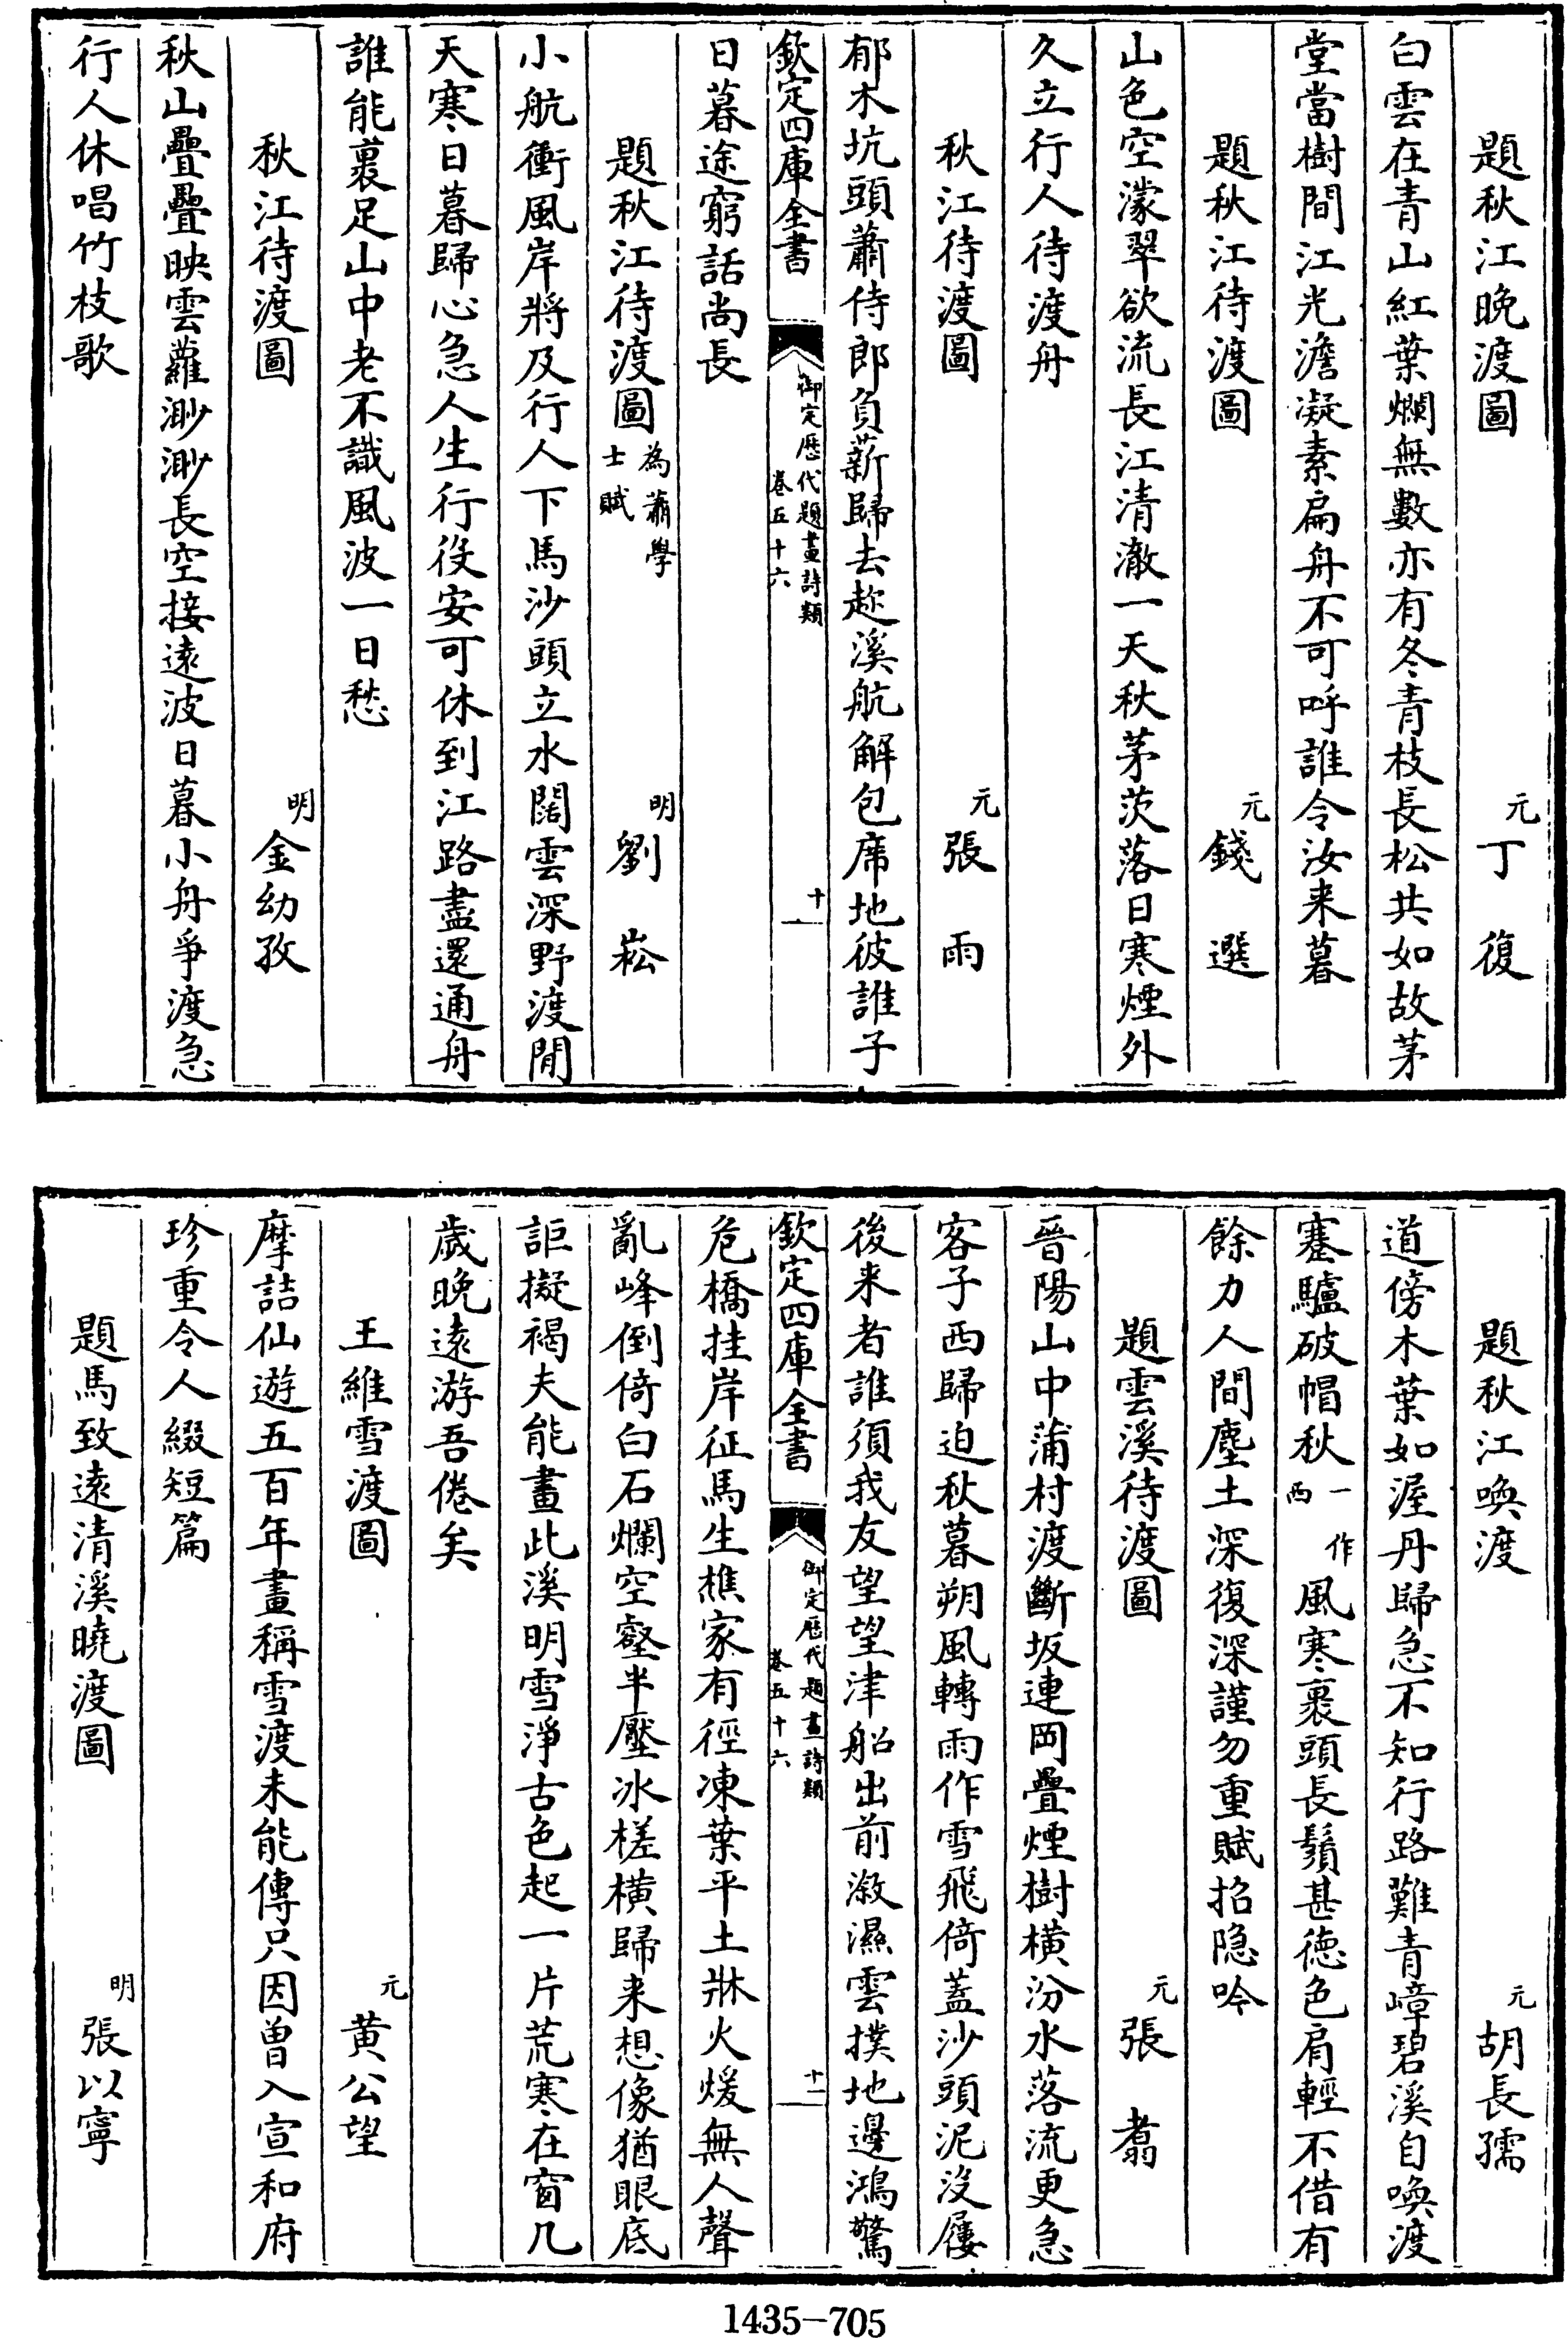 題秋江晚渡圖　元丁復
白雲在青山紅葉爛無數亦有冬青枝長松共如故茅
堂當樹間江光澹凝素扁舟不可呼誰令汝来暮
題秋江待渡圖　元錢選
山色空濛翠欲流長江清澈一天秋茅茨落日寒煙外
久立行人待渡舟
秋江待渡圖　元張雨
郁木坑頭蕭侍郎負薪歸去趂溪航解包席地彼誰子
欽定四庫全書　御定歷代題畫詩類卷五十六　十
日暮途窮話尚長
題秋江待渡圖為蕭學士賦　明劉崧
小航衝風岸將及行人下馬沙頭立水闊雲深野渡閒
天寒日暮歸心急人生行役安可休到江路盡還通舟
誰能裹足山中老不識風波一日愁
秋江待渡圖　明金幼孜
秋山疊疊映雲蘿渺渺長空接遠波日暮小舟爭渡急
行人休唱竹枝歌
題秋江喚渡　元胡長孺
道傍木葉如渥丹歸急不知行路難青嶂碧溪自喚渡
蹇驢破帽秋一作西風寒裹頭長鬚甚徳色肩輕不借有
餘力人間塵土深復深謹勿重賦招隐吟
題雲溪待渡圖　元張翥
晉陽山中蒲村渡斷坂連岡疊煙樹横汾水落流更急
客子西歸迫秋暮朔風轉雨作雪飛倚蓋沙頭泥沒屨
後来者誰須我友望望津船出前溆濕雲撲地邊鴻驚
欽定四庫全書　御定歷代題畫詩類卷五十六　十一
危橋挂岸征馬生樵家有徑凍葉平土牀火煖無人聲
亂峰倒倚白石爛空壑半壓冰槎横歸来想像猶眼底
詎擬褐夫能畫此溪明雪淨古色起一片荒寒在窗几
歲晚遠游吾倦矣
王維雪渡圖　元黄公望
摩詰仙遊五百年畫稱雪渡未能傳只因曽入宣和府
珍重令人綴短篇
題馬致遠清溪曉渡圖　明張以寧
1435-705